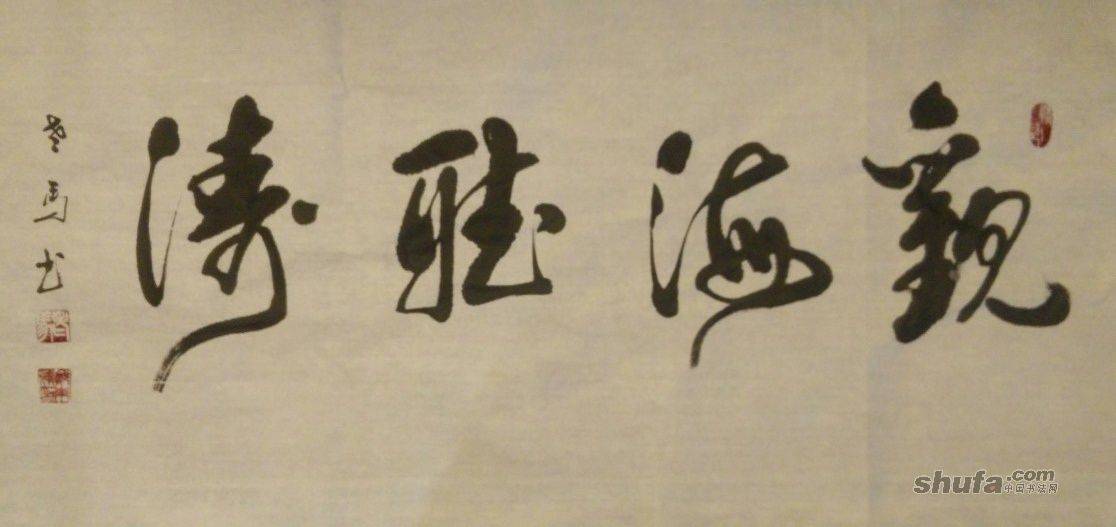 觀海聽濤
老馬书
shufa.com
中国书法网